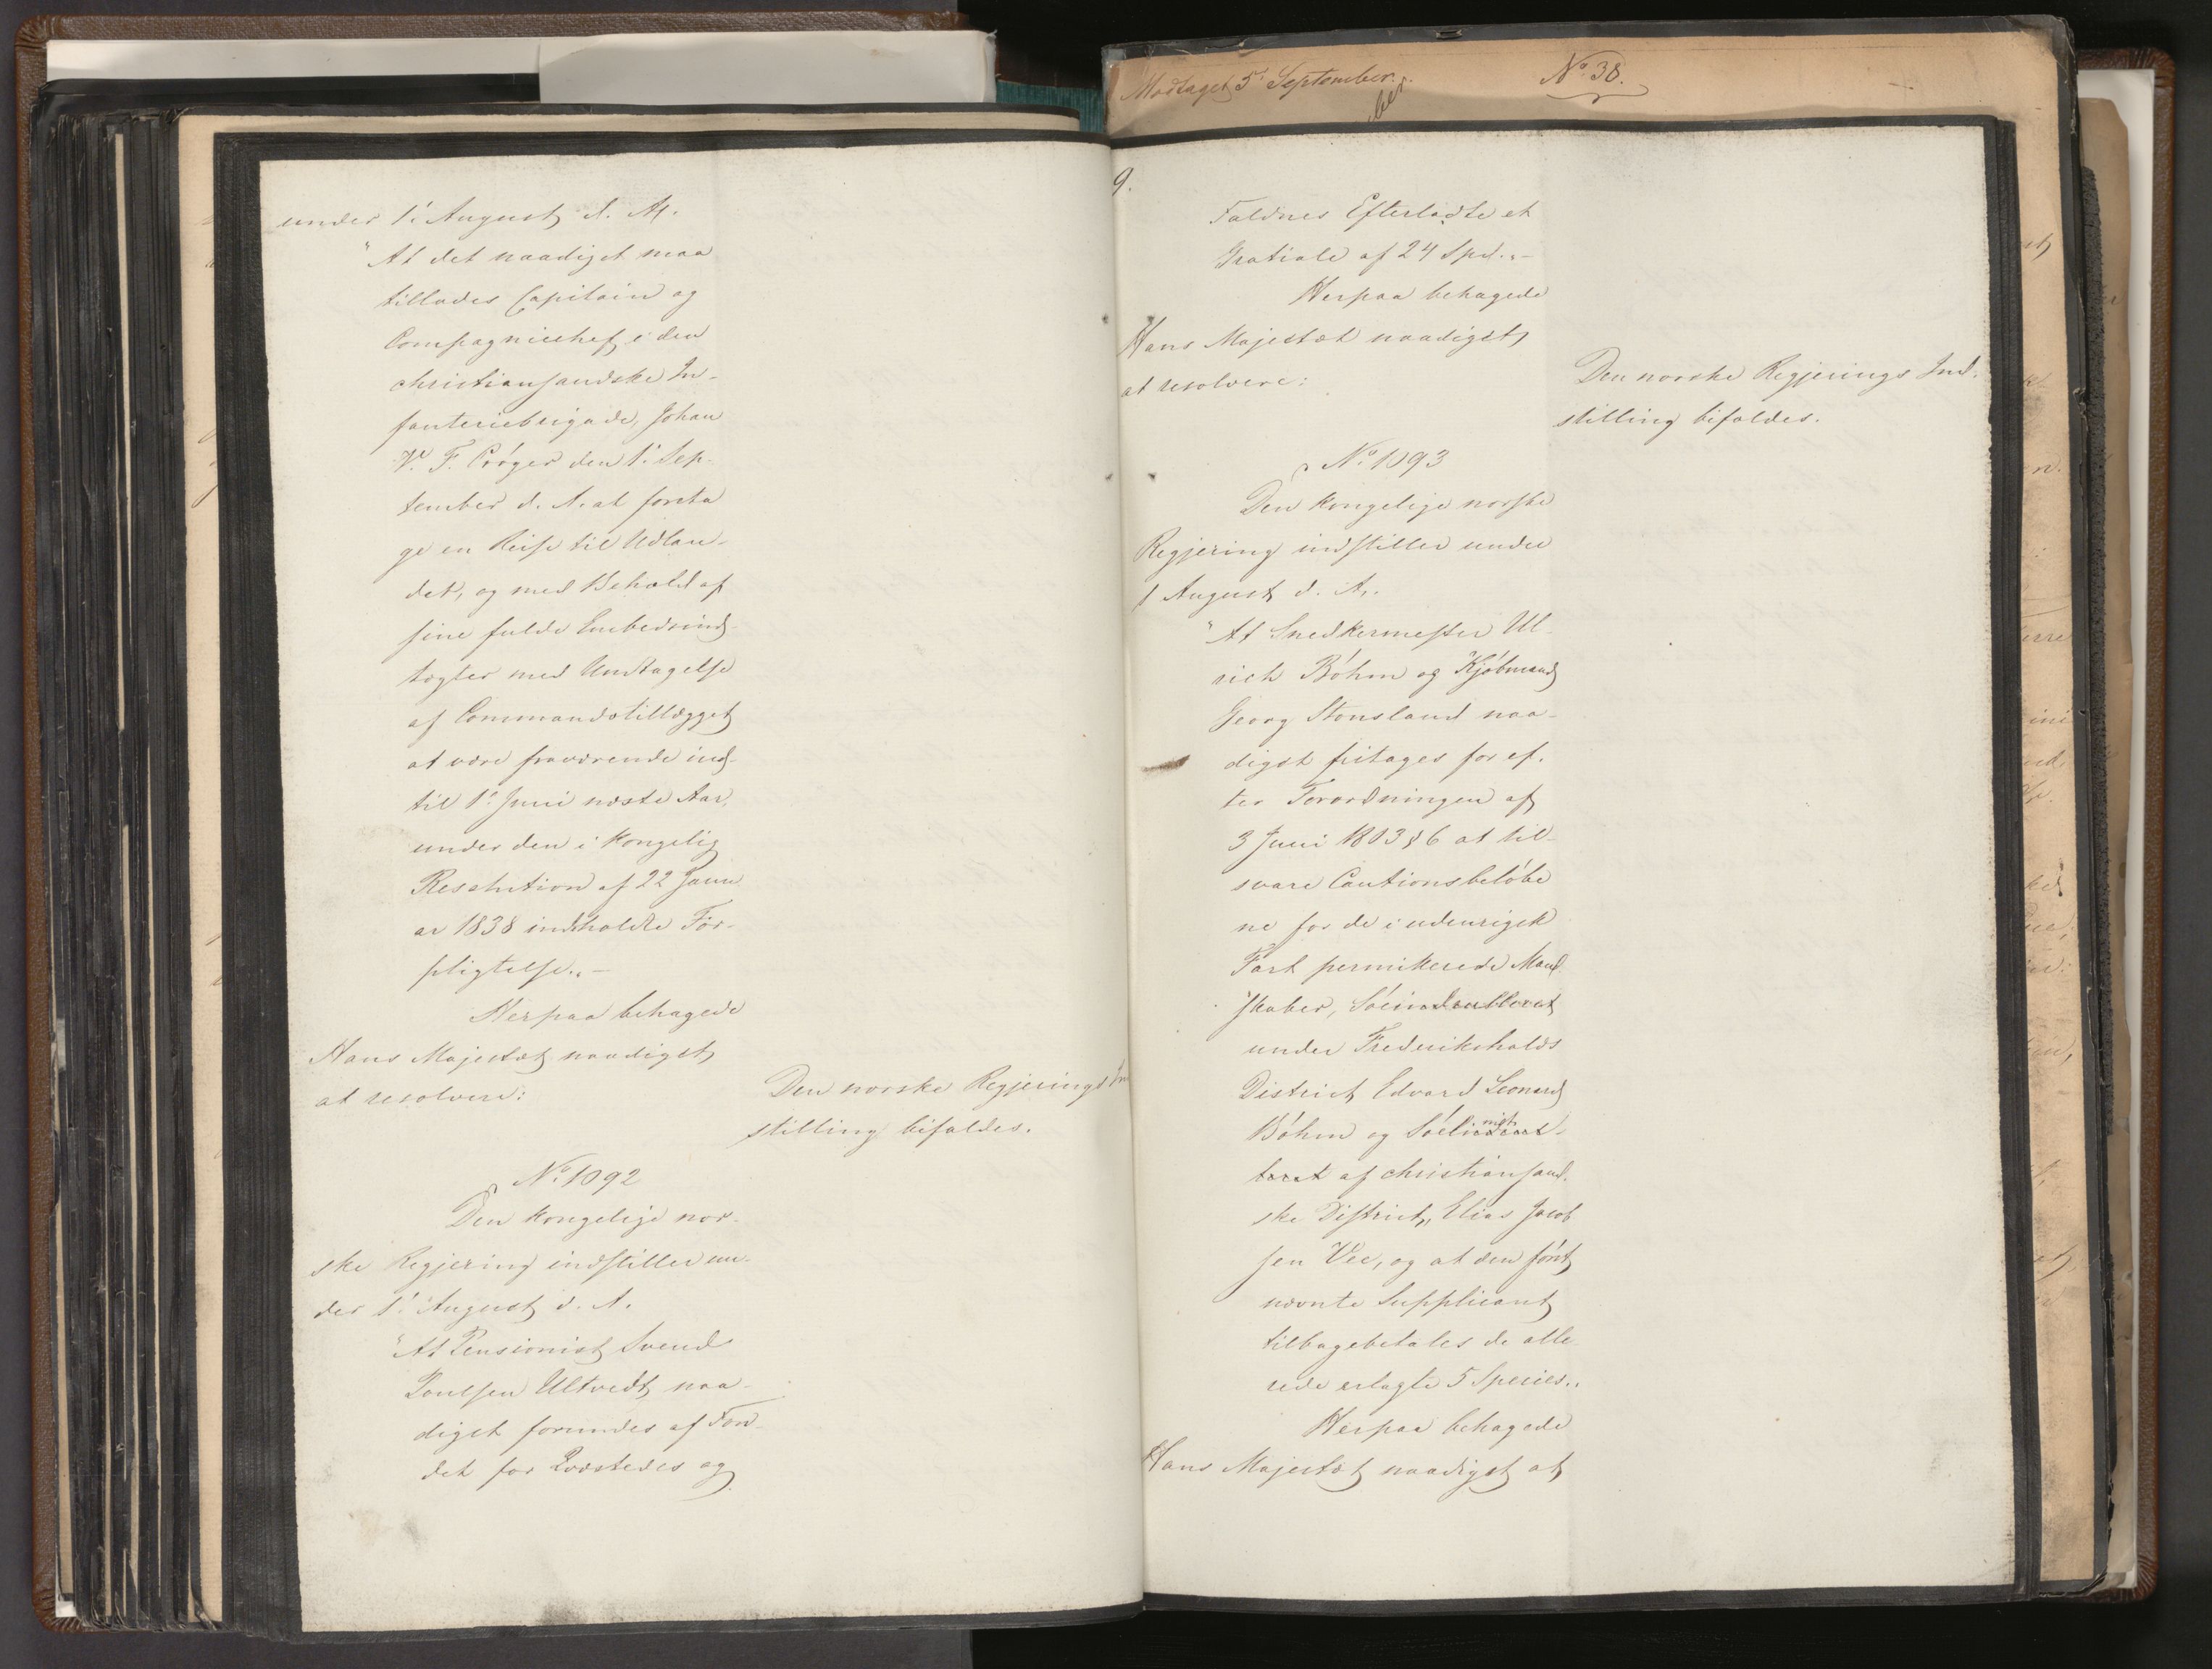 under 1ᵗ August d. A.
"At det naadigst maa
tillades Capitain og
Compagniechef i den
christiansandske In-
fanteriebrigade, Johan
V. F. Crøger den 1ᵗ Sep-
tember d. A. at foreta
ge en Reise til Udlan-
det, og med Behold af
sine fulde Embedsind-
tægter med Undtagelse
af Commandotillægget
at være fraværende ind-
til 1ᵗ Juni næste Aar,
under den i kongelig
Resolution af 22 Janu
ar 1838 indholdte For-
pligtelse." –
Herpaa behagede
Hans Majestæt naadigst
at resolvere:
Den norske Regjerings In
stilling bifaldes.
No. 1092
Den kongelige nor-
ske Regjering indstiller un-
der 1ᵗ August d. A.
"At Pensionist Svend
Poulsen Ultvedt naa-
digst forundes af Fon-
det for Qvæstedes og
Modtaget 5ᵗ September.
No. 38.
ber
9.
Faldnes Efterladte et
Gratiale af 24 Spd." –
Herpaa behagede
Hans Majestæt naadigst
at resolvere:
Den norske Regjerings Ind-
stilling bifaldes.
No. 1093
Den kongelige norske
Regjering indstiller under
1 August d. A.
"At Snedkermester Ul-
rich Bøhm og Kjøbmand
Georg Stousland naa-
digst fritages for ef-
ter Forordningen af
3 Juni 1803 § 6 at til-
svare Cautionsbeløbe
ne for de i udenrigsk
Fart permitterede Mand
skaber, Søeindrulleret
under Frederikshalds
District Edvard Leonard
Bøhm og Søelimit
teret af christiansand-
ske District, Elias Jacob
sen Vee, og at den først
nævnte Supplicant
tilbagebetales de alle
rede erlagte 5 Species."
Herpaa behagede
Hans Majestæt naadigst at